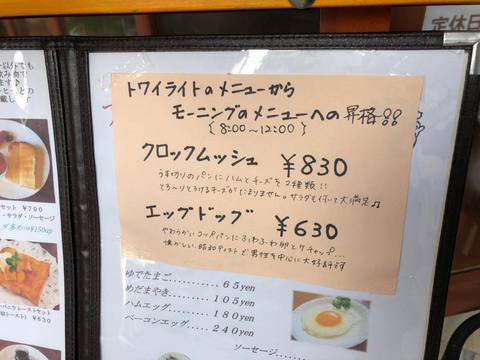 トワイライトのメニューから
モーニングのメニューへの昇格!!
{ 8:00〜12:00 }
クロックムッシュ ¥830
うす切りのパンにハムとチーズを2種類!!
とろ〜りとろけるチーズがたまりません。サラダも付いて大満足♪
エッグドッグ ¥630
やわらかいコッペパンにふわふわ卵とケチャップ...
懐かしい昭和テイストで男性を中心に大好評です
ゆでたまご.........65yen
めだまやき.........105yen
ハムエッグ.........180yen
ベーコンエッグ......240yen
ソーセージ
定休日
セット ¥700
・サラダ・ソーセージ
¥630